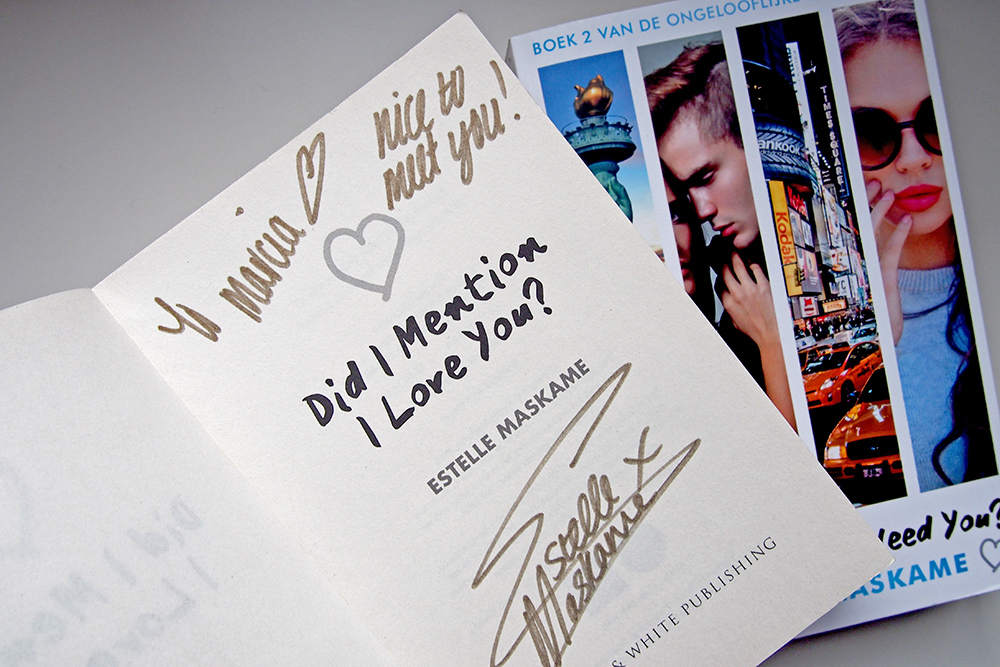 To Marcia
nice to
meet you!
Did I Mention
I Love You?
ESTELLE MASKAME
Estelle
Maskame x
& WHITE PUBLISHING
BOEK 2 VAN DE ONGELOOFLIJKE
TIMES SQUARE
Kodak
Need You?
MASKAME